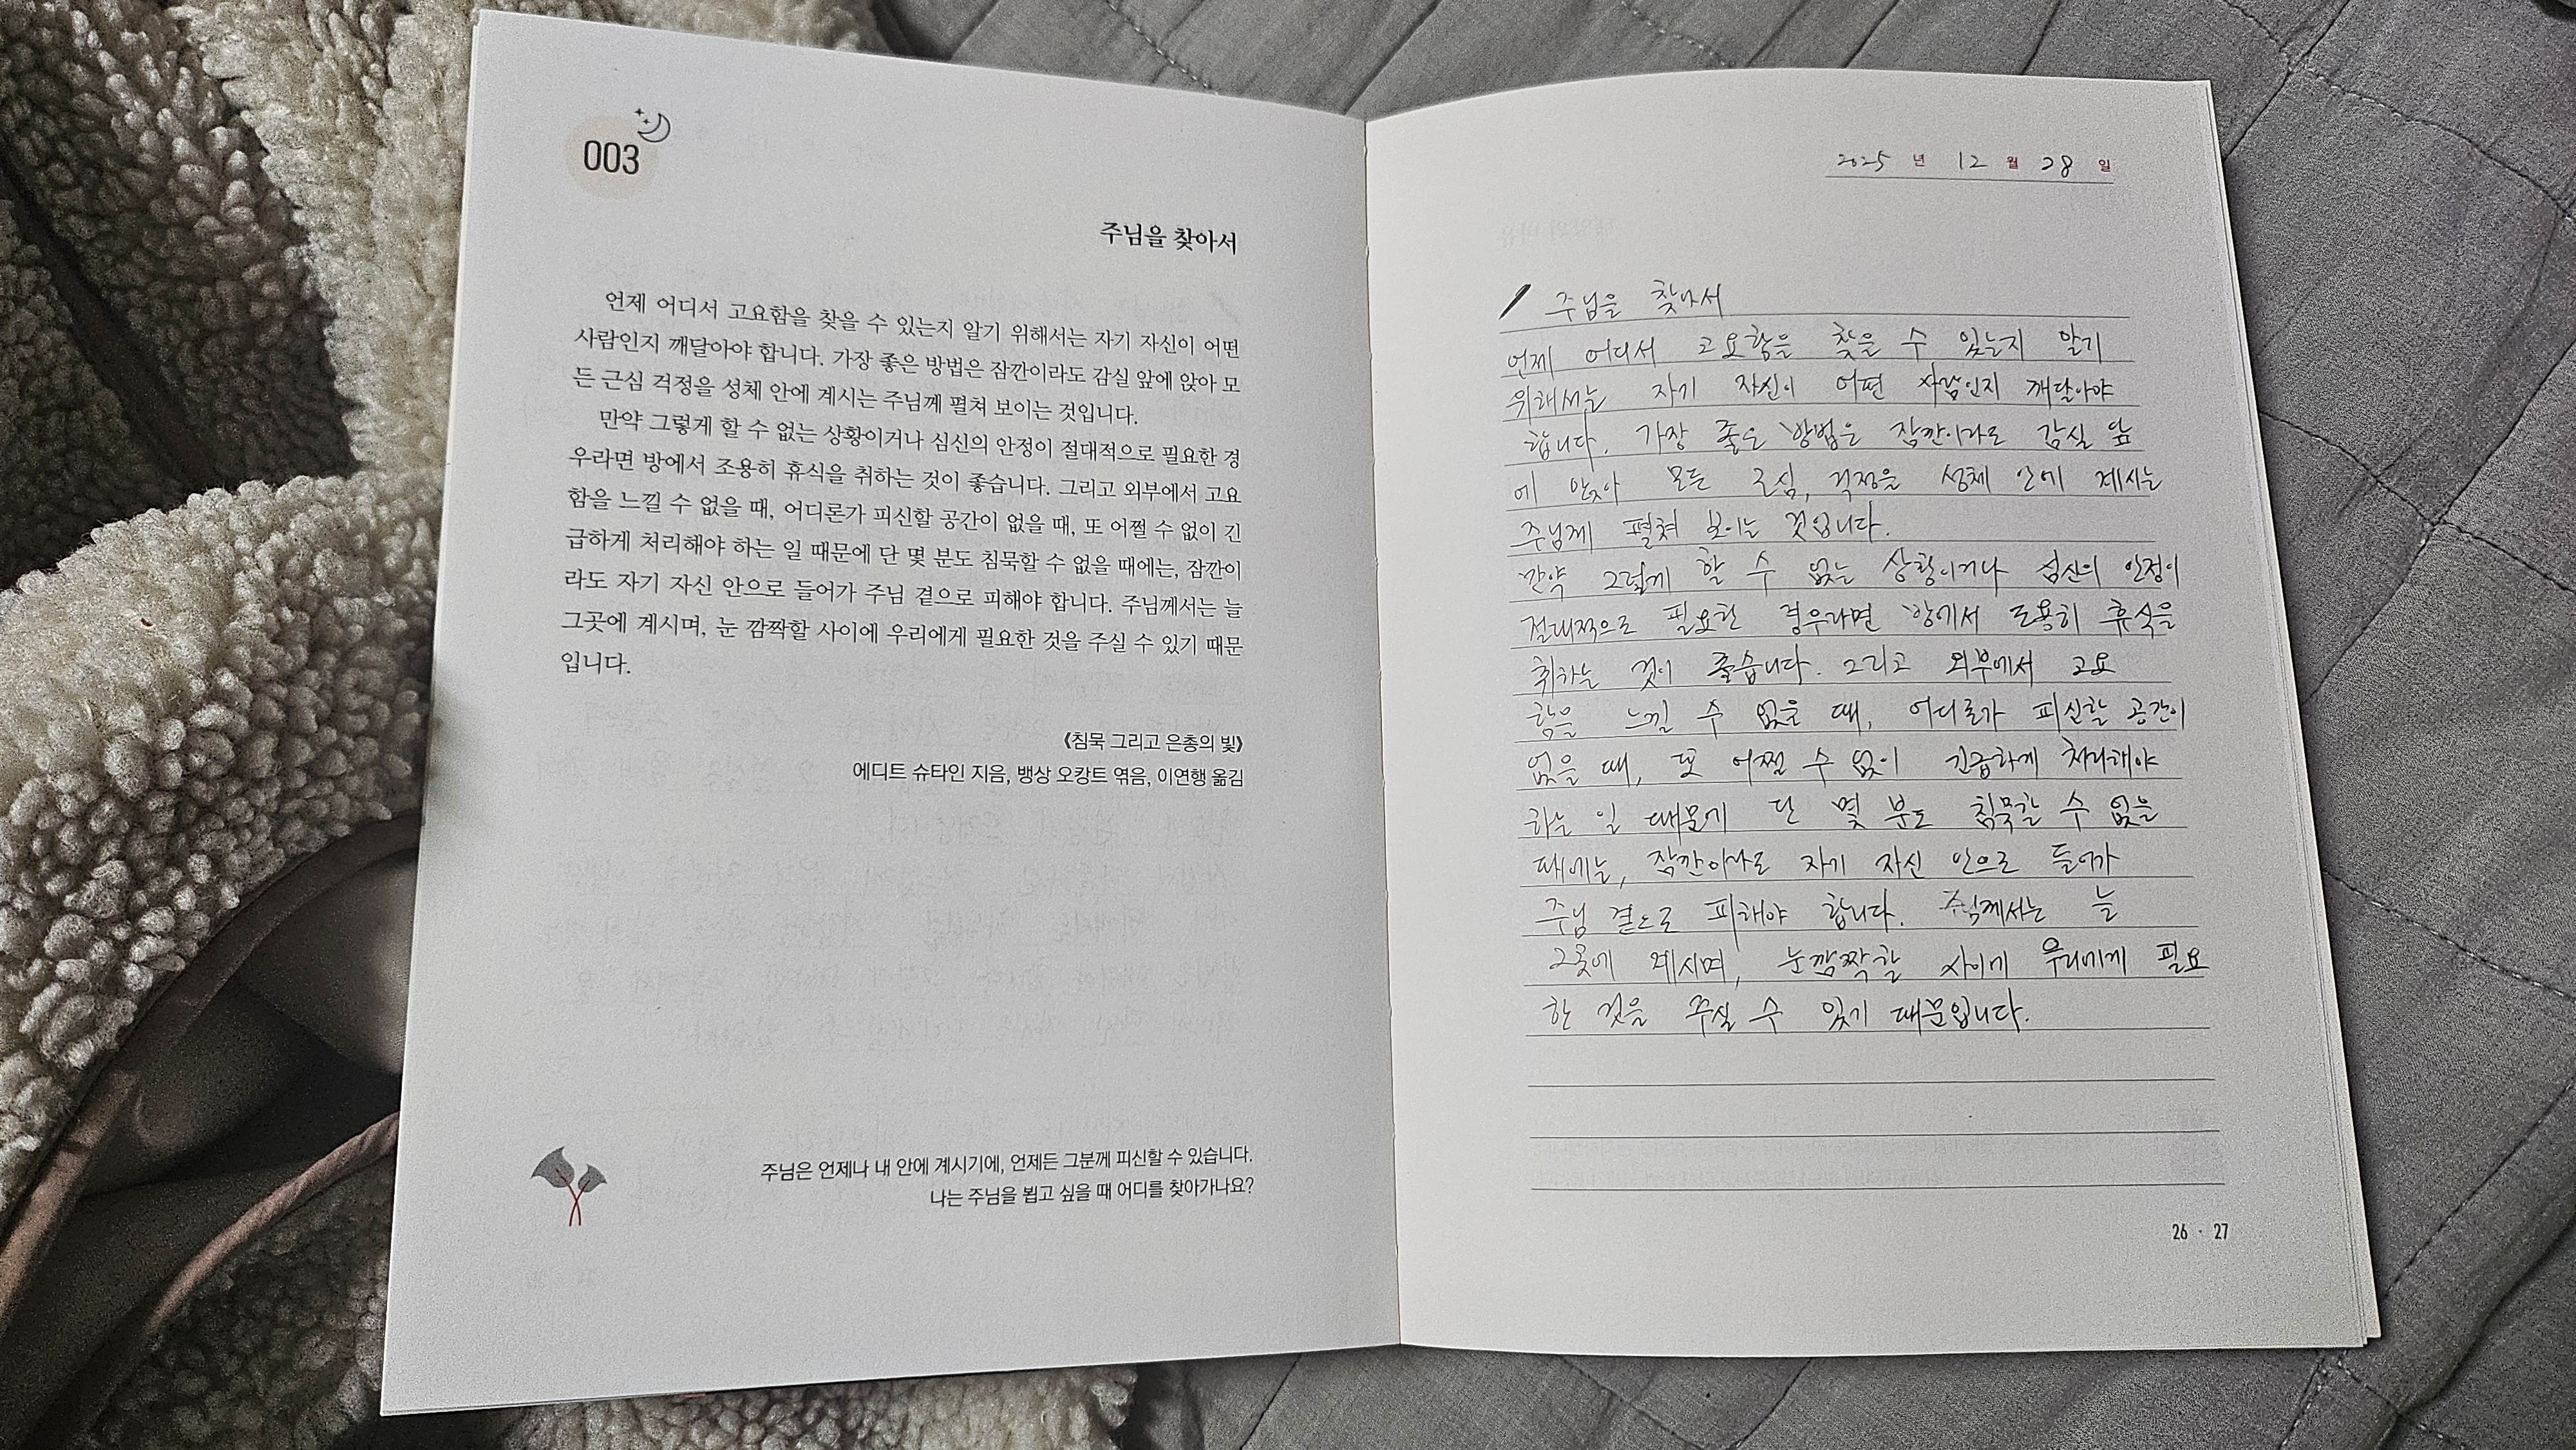 003
주님을 찾아서
언제 어디서 고요함을 찾을 수 있는지 알기 위해서는 자기 자신이 어떤
사람인지 깨달아야 합니다. 가장 좋은 방법은 잠깐이라도 감실 앞에 앉아 모
든 근심 걱정을 성체 안에 계시는 주님께 펼쳐 보이는 것입니다.
만약 그렇게 할 수 없는 상황이거나 심신의 안정이 절대적으로 필요한 경
우라면 방에서 조용히 휴식을 취하는 것이 좋습니다. 그리고 외부에서 고요
함을 느낄 수 없을 때, 어디론가 피신할 공간이 없을 때, 또 어쩔 수 없이 긴
급하게 처리해야 하는 일 때문에 단 몇 분도 침묵할 수 없을 때에는, 잠깐이
라도 자기 자신 안으로 들어가 주님 곁으로 피해야 합니다. 주님께서는 늘
그곳에 계시며, 눈 깜짝할 사이에 우리에게 필요한 것을 주실 수 있기 때문
입니다.
《침묵 그리고 은총의 빛》
에디트 슈타인 지음, 뱅상 오캉트 엮음, 이연행 옮김
주님은 언제나 내 안에 계시기에, 언제든 그분께 피신할 수 있습니다.
나는 주님을 뵙고 싶을 때 어디를 찾아가나요?
2025 년 12 월 28 일
주님을 찾아서
언제 어디서 고요함을 찾을 수 있는지 알기
위해서는 자기 자신이 어떤 사람인지 깨달아야
합니다. 가장 좋은 방법은 잠깐이라도 감실 앞
에 앉아 모든 근심, 걱정을 성체 안에 계시는
주님께 펼쳐 보이는 것입니다.
만약 그렇게 할 수 없는 상황이거나 심신의 안정이
절대적으로 필요한 경우라면 방에서 조용히 휴식을
취하는 것이 좋습니다. 그리고 외부에서 고요
함을 느낄 수 없을 때, 어디론가 피신할 공간이
없을 때, 또 어쩔 수 없이 긴급하게 처리해야
하는 일 때문에 단 몇 분도 침묵할 수 없을
때에는, 잠깐이라도 자기 자신 안으로 들어가
주님 곁으로 피해야 합니다. 주님께서는 늘
그곳에 계시며, 눈깜짝할 사이에 우리에게 필요
한 것을 주실 수 있기 때문입니다.
26 · 27